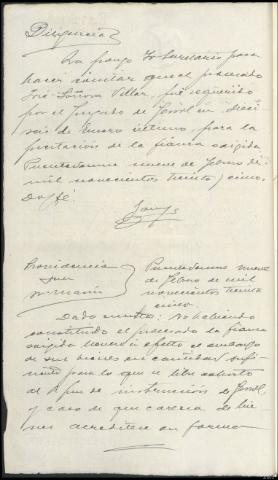 Diligencia
La pongo yo Secretario para
hacer constar que el procesado
José Villar, fué requerido
por el Juzgado de Ferrol en dieci
seis de Enero último, para la
prestación de la fianza exigida
Puentedeume nueve de Febrero de
mil novecientos treinta y cinco.
Doy fé.
Providencia Puentedeume nueve
Juez de Febrero de mil
novecientos treinta
cinco.
Dado cuenta: No habiendo
constituido el procesado la fianza
exigida llévese a efecto el embargo
de sus bienes en cantidad sufi
ciente para lo que se libre exhorto
al Sr Juez de instrucción de Ferrol,
y caso de que carezca de bie
nes acredítese en forma